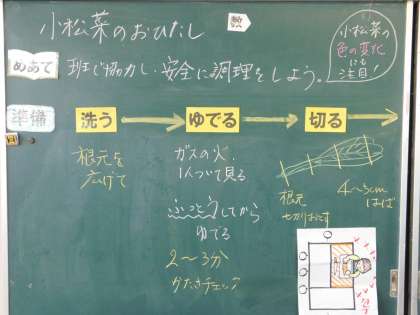 小松菜のおひたし
めあて 班で協力し、安全に調理をしよう。
小松菜の
色の変化
にも
注目!
準備 洗う ゆでる 切る
根元を
広げて
ガスの火、
1人ついて見る
ふっとうしてから
ゆでる
2〜3分
かたさチェック
根元
切りおとす
4〜5cm
はば